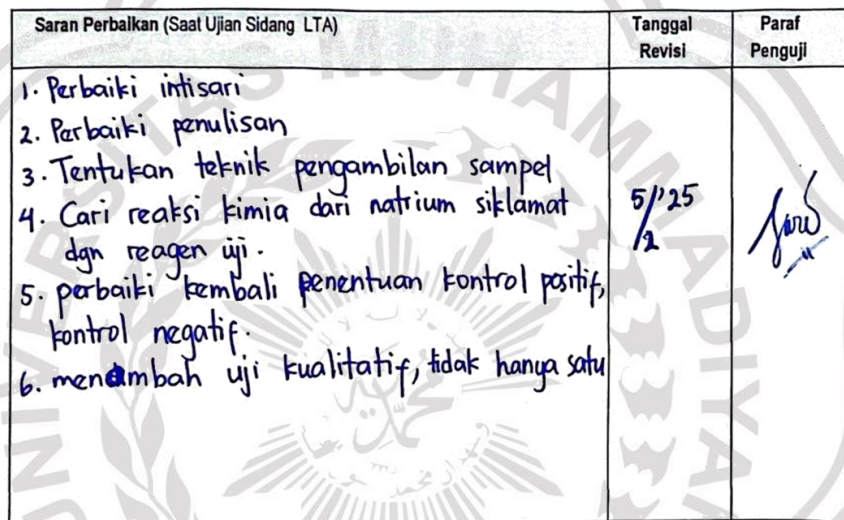 Saran Perbaikan (Saat Ujian Sidang LTA)
Tanggal Revisi
Paraf Penguji
1. Perbaiki intisari
2. Perbaiki penulisan
3. Tentukan teknik pengambilan sampel
4. Cari reaksi kimia dari natrium siklamat
dgn reagen uji.
5. perbaiki kembali penentuan kontrol positif,
kontrol negatif.
6. menambah uji kualitatif, tidak hanya satu
5/2 '25